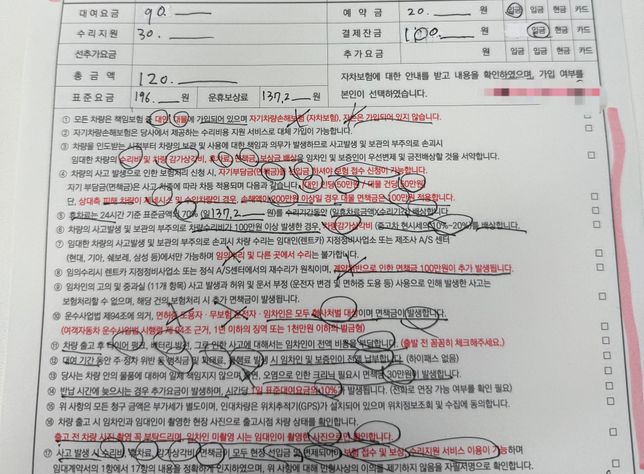 대여요금 90. 원 예약금 20. 원 입금 입금 현금 카드
수리지원 30. 원 결제잔금 100. 원 입금 입금 현금 카드
선추가요금 원 추가요금 원 입금 입금 현금 카드
총금액 120. 원 자차보험에 대한 안내를 받고 내용을 확인하였으며, 가입 여부를
표준요금 196. 원 운휴보상료 137.2 원 본인이 선택하였습니다.
① 모든 차량은 책임보험 중 대인 대물에 가입되어 있으며 자기차량손해보험 (자차보험), 가입되어 있지 않습니다.
② 자기차량손해보험은 당사에서 제공하는 수리비용 지원 서비스로 대체 가입이 가능합니다.
③ 차량을 인도받는 시점부터 차량의 보관 및 사용에 대한 책임과 의무가 발생하므로 사고발생과 보관의 부주의로 손괴시
임대한 차량의 수리비 및 차량 감가상각비, 휴차료, 면책금, 보상금 배상을 임차인 및 보증인이 우선변제 및 금전배상할 것을 서약합니다.
④ 차량의 사고 발생으로 인한 보험처리 신청 시, 자기부담금(면책금)을 선입금 하셔야 보험 접수 신청이 가능합니다.
자기 부담금(면책금)은 사고 처종에 따라 차등 적용되며 다음과 같습니다. 대인 인당 50만원 / 대물 건당 50만원
단, 상대측 피해 차량이 제네시스 및 수입차량인 경우, 손해액이 200만원 이상일 경우 대물 면책금은 100만원 적용합니다.
⑤ 휴차료는 24시간 기준 표준금액의 70% (일 137.2 원)를 수리기간동안 (일휴차료금액)(수리기간) 배상합니다.
⑥ 차량의 사고발생 및 보관의 부주의로 차량수리비가 100만원 이상 발생한 경우, 차량감가상각비 (중고차 현시세의 10%~20%)를 배상합니다.
⑦ 임대한 차량의 사고발생 및 보관의 부주의로 손괴시 차량 수리는 임대인(렌트카) 지정정비사업소 또는 제조사 A/S 센터
(현대, 기아, 쉐보레, 삼성 등)에서만 가능하며 임의수리 및 다른 곳에서 수리는 불가합니다.
⑧ 임의수리시 렌트카 지정정비사업소 또는 정식 A/S센터에서의 재수리가 원칙이며, 계약위반으로 인한 면책금 100만원이 추가 발생됩니다.
⑨ 임차인의 고의 및 중과실 (11개 항목) 사고 발생과 허위 및 문서 부정 (운전자 변경 및 면허증 도용 등) 사용으로 인해 발생한 사고는
보험처리할 수 없으며, 해당 건의 보험처리 시 추가 면책금이 발생됩니다.
⑩ 운수사업법 제94조에 의거, 면허증 도용자 · 무보험 운전자 · 임차인은 모두 형사처벌 대상이며 면책금이 발생합니다.
(여객자동차 운수사업법 시행령 제 94조 근거, 1년 이하의 징역 또는 1천만원 이하의 벌금형)
⑪ 차량 출고 후 타이어 펑크, 배터리 방전, 그로 인한 사고에 대해서는 임차인이 전액 비용을 부담합니다. (출발 전 꼼꼼히 체크해주세요.)
⑫ 대여 기간 동안 주 정차 위반 등 범칙금 및 과태료, 통행료 발생 시 임차인 및 보증인이 전액 납부합니다. (하이패스 없음)
⑬ 당사는 차량 안의 물품에 대하여 일체 책임지지 않으며, 흡연, 오염으로 인한 크리닉 필요시 면책금 30만원이 발생합니다.
⑭ 반납 시간에 늦으시는 경우 추가요금이 발생하며, 시간당 1일 표준대여요금의 10%가 발생됩니다. (전화로 연장 가능 여부를 확인 필요)
⑮ 위 사항의 모든 청구 금액은 부가세가 별도이며, 인대차량은 위치추적기(GPS)가 설치되어 있으며 위치정보조회 및 수집에 동의합니다.
⑯ 차량 출고 시 임차인과 임대인이 촬영한 현장 사진으로 출고시점 차량 상태를 확인합니다.
출고 전 차량 사진 촬영 꼭 부탁드리며, 임차인 미촬영 시는 임대인이 촬영한 사진으로만 확인합니다.
⑰ 사고 발생 시 수리비, 휴차료, 감가상각비, 면책금이 모두 현장 선입금 및 면제되어야 보험 접수 및 보상, 수리지원 서비스 이용이 가능하며
임대계약서의 1항에서 17항의 내용을 정확하게 인지하였으며, 위 사항에 대해 민형사상의 이의를 제기하지 않음을 자필자명으로 확인합니다.